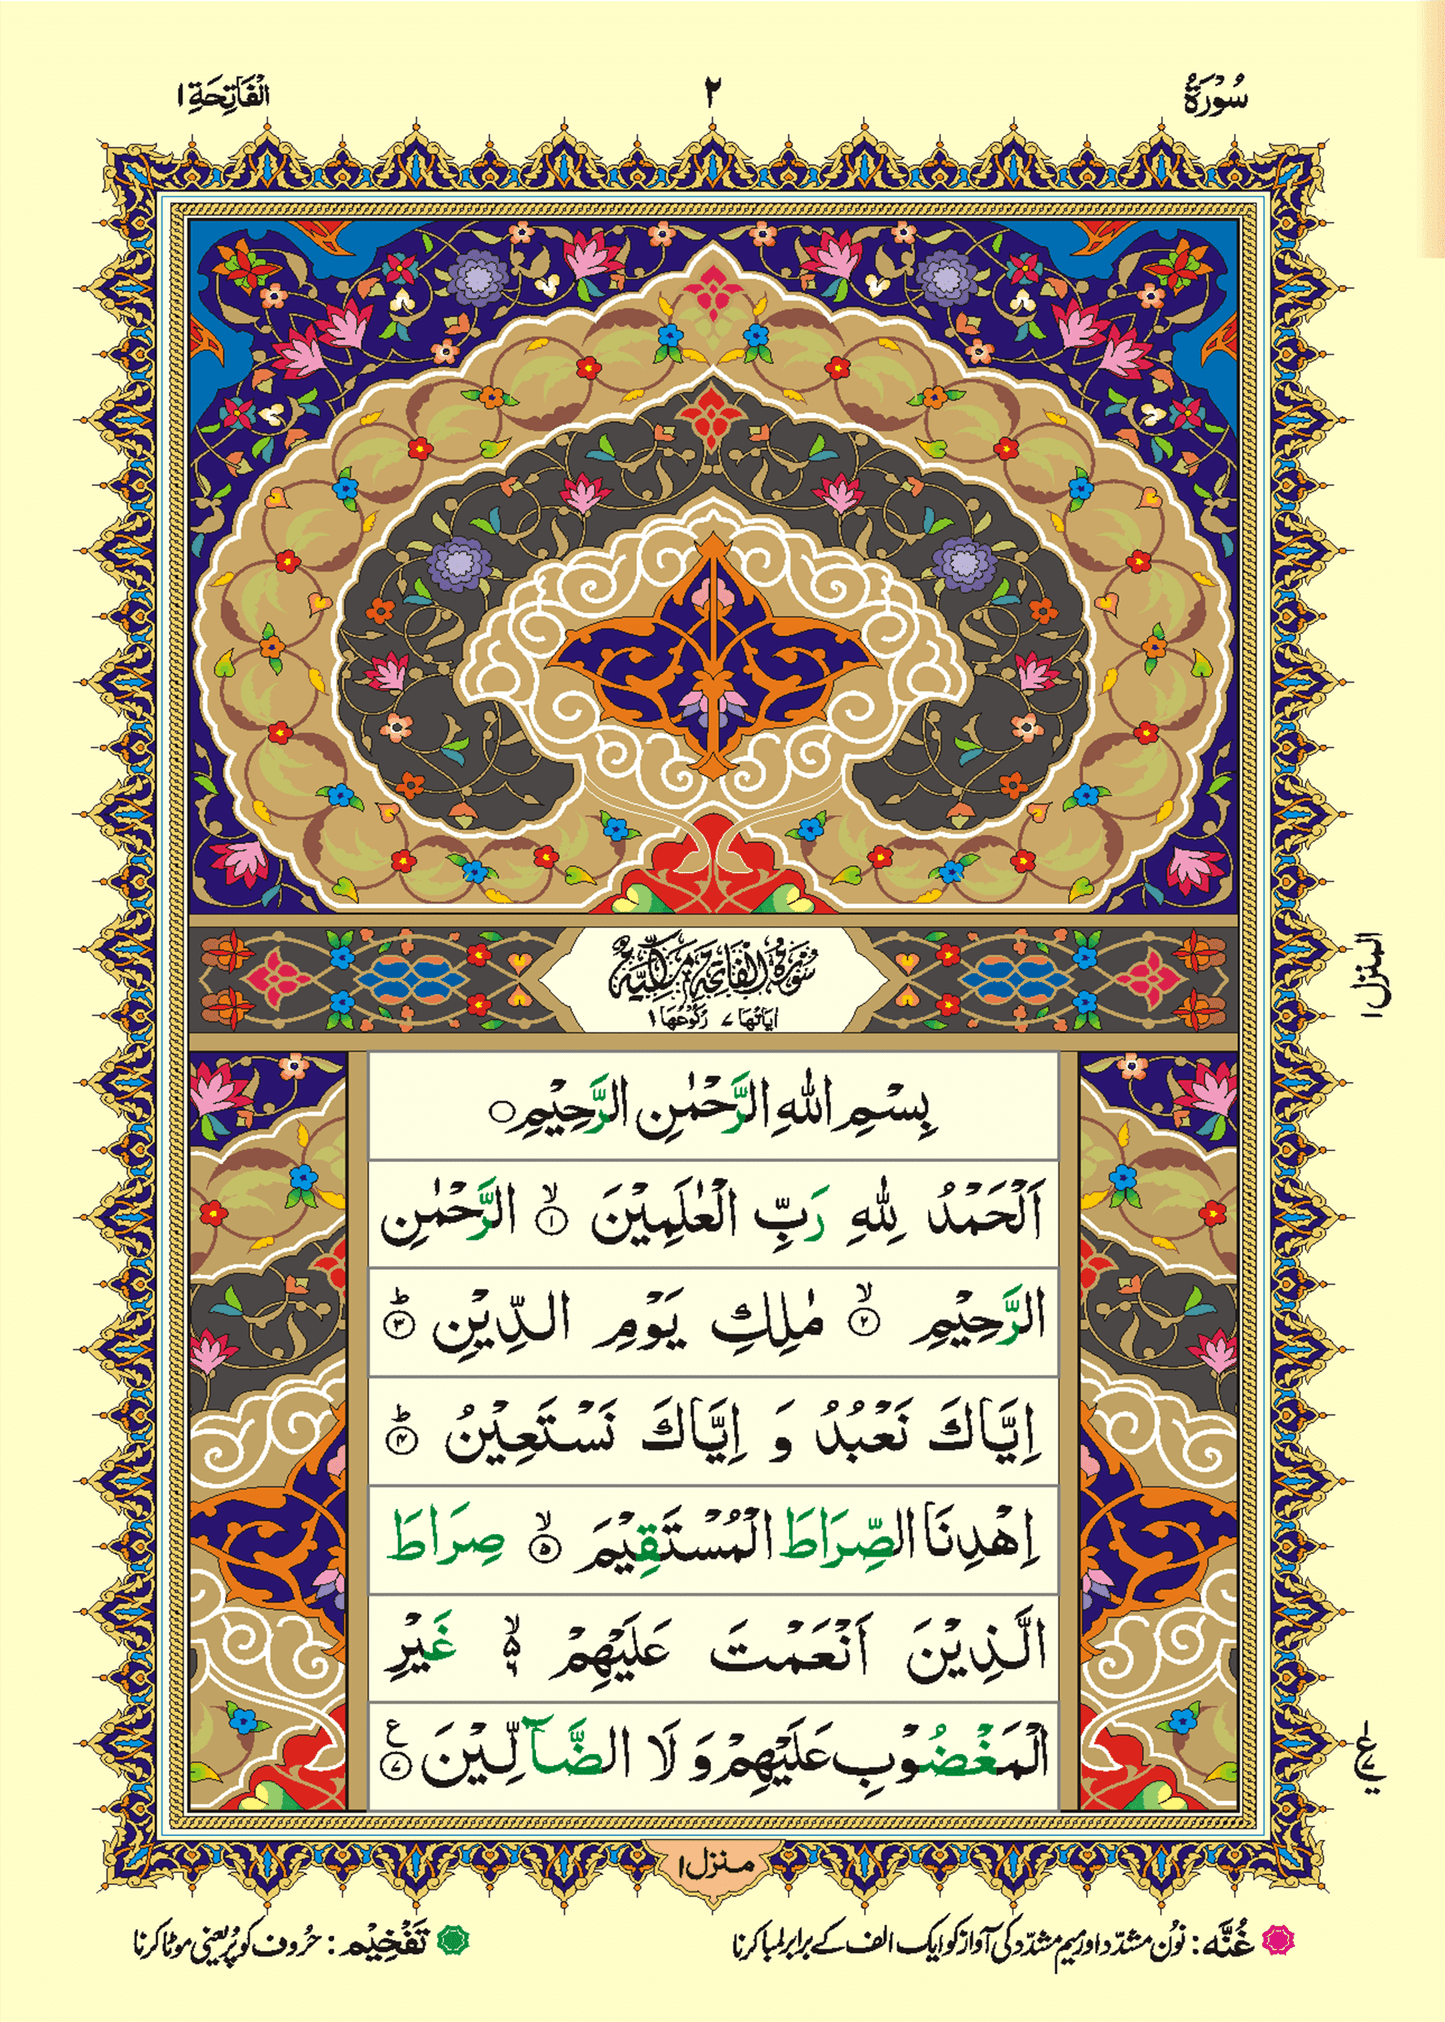 سُوْرَةُ ۲ اَلْفَاتِحَةِ ۱
سُوْرَةُ الْفَاتِحَةِ مَكِّيَّةٌ
اٰيَاتُهَا ۷ رُكُوْعُهَا ۱
بِسْمِ اللّٰهِ الرَّحْمٰنِ الرَّحِيْمِ ○
اَلْحَمْدُ لِلّٰهِ رَبِّ الْعٰلَمِيْنَ ۙ﴿۱﴾ الرَّحْمٰنِ
الرَّحِيْمِ ۙ﴿۲﴾ مٰلِكِ يَوْمِ الدِّيْنِ ؕ﴿۳﴾
اِيَّاكَ نَعْبُدُ وَ اِيَّاكَ نَسْتَعِيْنُ ؕ﴿۴﴾
اِهْدِنَا الصِّرَاطَ الْمُسْتَقِيْمَ ۙ﴿۵﴾ صِرَاطَ
الَّذِيْنَ اَنْعَمْتَ عَلَيْهِمْ ۙ۬ۦ۶ غَيْرِ
الْمَغْضُوْبِ عَلَيْهِمْ وَ لَا الضَّآلِّيْنَ ﴿۷﴾ ع
المنزل ۱
منزل ۱
غُنَّه: نُوْن مشدّد اور میم مشدّد کی آواز کو ایک الف کے برابر لمبا کرنا
تَفْخِيْم: حُروف کو پُر یعنی موٹا کرنا